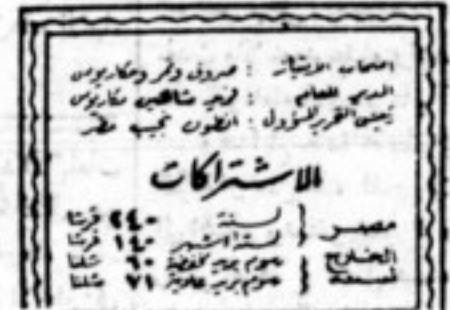 اصحاب الامتياز : صروف ونمر ومكاريوس
المدير العام : فريد شاهين مكاريوس
رئيس التحرير المسؤول : انطون نجيب مطر
الاشتراكات
مصر { لسنة ٢٤٠ قرشا
لستة اشهر ١٤٠ قرشا
الخارج { برسوم بريد مخفضة ٦٠ شلنا
لسنة برسوم بريد عادية ٧١ شلنا